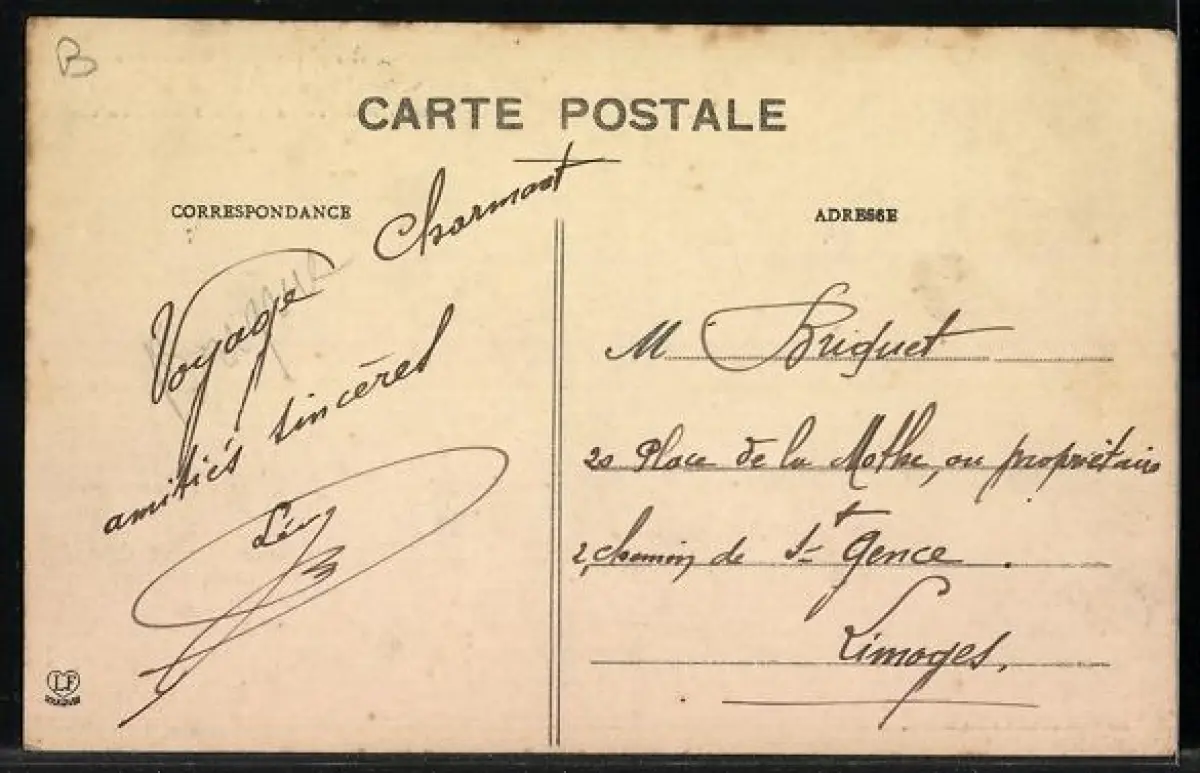 B
CARTE POSTALE
CORRESPONDANCE
Voyage Charmant
amitiés sincères
Léo
B
LF
ADRESSE
M Briquet
20 Place de la Mothe, ou propriétaire
2, chemin de St Gence.
Limoges.